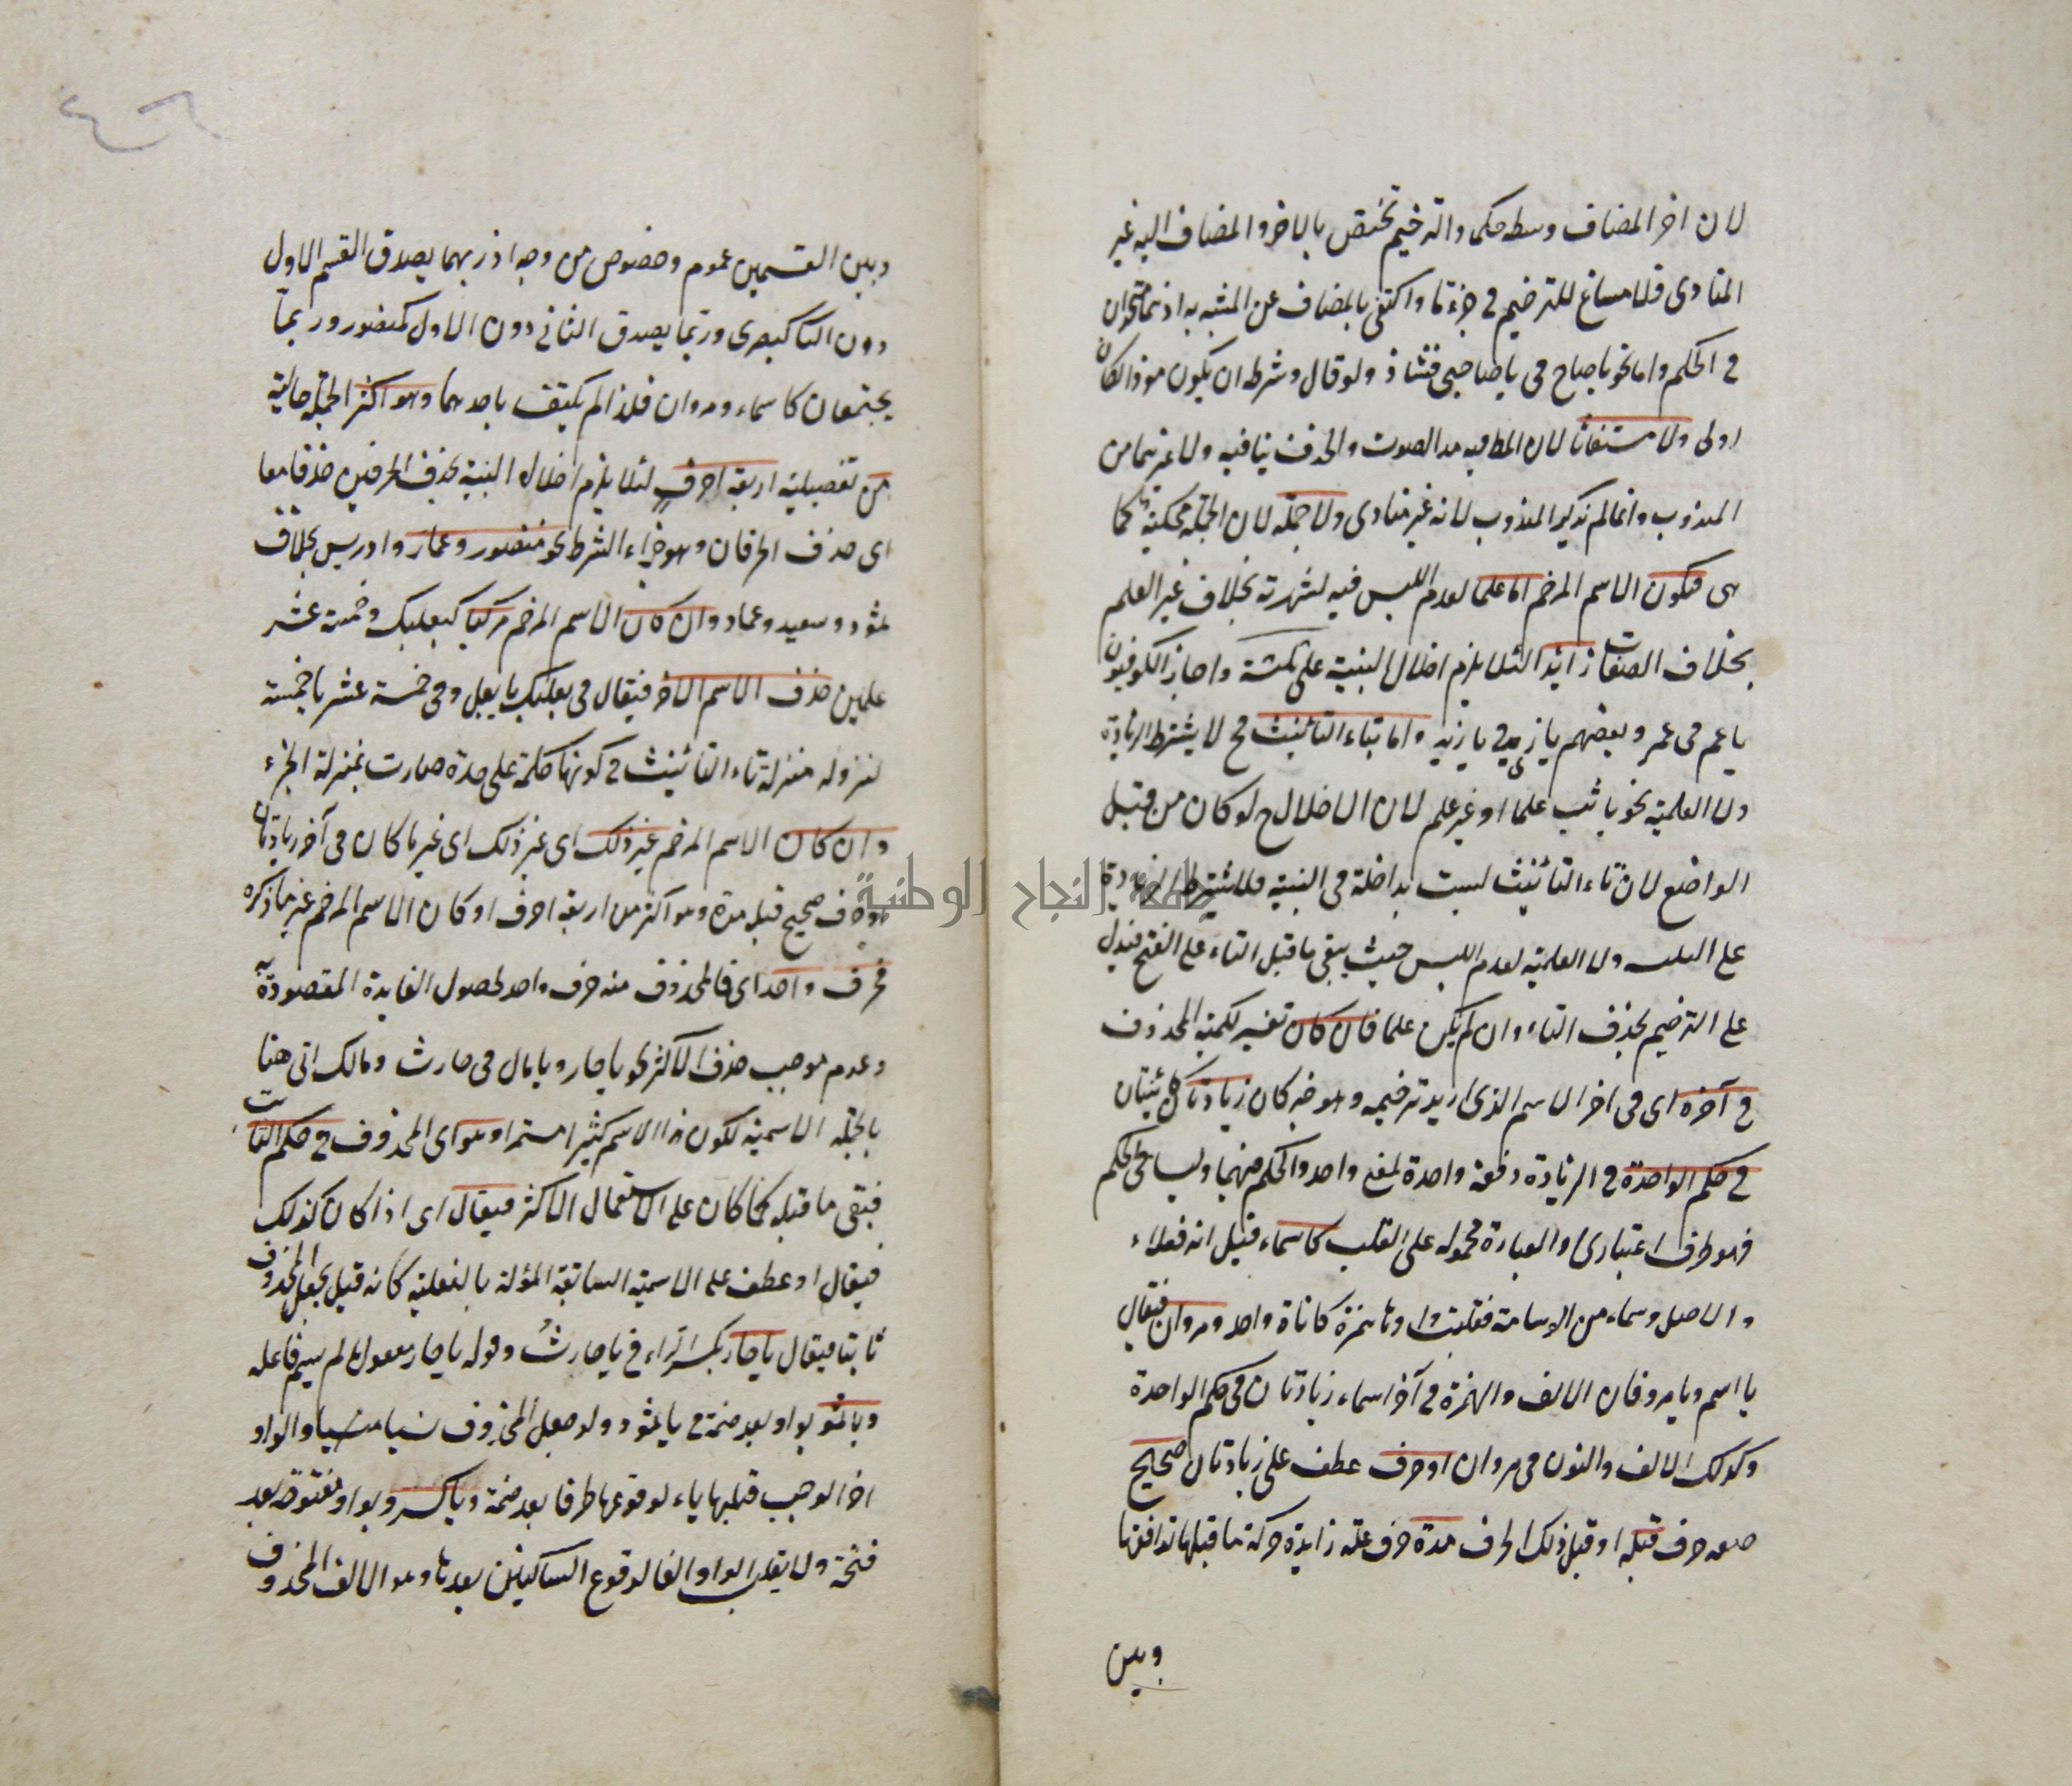 لان اخر المضاف وسط حكما والترخيم يختص بالاخر والمضاف اليه غير
المنادى فلا مساغ للترخيم في جزء ما واكتفى بالمضاف عن المشبه به اذ هما متحدان
في الحكم واما نحو يا صاح في يا صاحبي فشاذ ولو قال وشرطه ان يكون مفردا لكان
اولى ولا مستغاثا لان المط فيه مد الصوت والحذف ينافيه ولا غيرهما من
المندوب وانما لم يذكر المندوب لانه غير منادى ولا جملة لان الجملة محكية كما
هى فيكون الاسم المرخم اما علما لعدم اللبس فيه لشهرته بخلاف غير العلم
بخلاف الصفات زائدا لئلا يلزم اخلال البنية على ثلثة واجاز الكوفيون
يا عم في عمر وبعضهم يا زي في يا زيد واما بتاء التأنيث فح لا يشترط الزيادة
ولا العلمية نحو يا ثب علما او غير علم لان الاخلال ح لو كان من قبل
الواضع لان تاء التأنيث ليست بداخلة في البنية فلا يشترط الزيادة
على الثلث ولا العلمية لعدم اللبس حيث يبقى ما قبل التاء على الفتح فيدل
على الترخيم بحذف التاء وان لم يكن علما فان كان تفسير لكمية المحذوف
في آخره اى في اخر الاسم الذي اريد ترخيمه وهو خبر كان زيادتان كائنتان
في حكم الواحدة في الزيادة دفعة واحدة لمعنى واحد والحكم فيهما وليسا في الحكم
فهو ظرف اعتبارى والعبارة محمولة على القلب كاسماء قيل انه فعلاء
والاصل وسماء من الوسامة فقلبت واوها همزة كاناة واحد ومروان فيقال
يا اسم ويا مرو فان الالف والهمزة في آخر اسماء زيادتان في حكم الواحدة
وكذلك الالف والنون في مروان او حرف عطف على زيادتان صحيح
صفة حرف قبله او قبل ذلك الحرف مدة حرف علة زايدة حركة ما قبلها توافقها
وبين
وبين القسمين عموم وخصوص من وجه اذ ربهما يصدق القسم الاول
دون الثا كبصرى وربما يصدق الثاني دون الاول كمنصور وربما
يجتمعان كاسماء ومروان فلذا لم يكتف باحدهما وهو اكثر الجملة حالية
من تفصيلية اربعة احرف لئلا يلزم اخلال البنية بحذف الحرفين حذفا معا
اى حذف الحرفان وهو جزاء الشرط نحو منصور وعمار وادريس بخلاف
ثمود وسعيد وعماد وان كان الاسم المرخم مركبا كبعلبك وخمسة عشر
علمين حذف الاسم الاخر فيقال في بعلبك يا بعل وفي خمسة عشر يا خمسة
لنزوله منزلة تاء التأنيث في كونها كلمة على حدة صارت بمنزلة الجزء
وان كان الاسم المرخم غير ذلك اى غير ذلك اى غير ما كان في آخره زيادتان
او حرف صحيح قبله مدة وهو اكثر من اربعة احرف او كان الاسم المرخم غير ما ذكره
فحرف واحد اى فالمحذوف منه حرف واحد لحصول الفايدة المقصودة
وعدم موجب حذف الاكثر نحو يا حار ويا مال في حارث ومالك اتى هنا
بالجملة الاسمية لكون هذا الاسم كثيرا مستمرا وهو اى المحذوف في حكم الثابت
فبقى ما قبله كما كان على الاستعمال الاكثر فيقال اى اذا كان كذلك
فيقال او عطف على الاسمية السابقة المؤلة بالفعلية كأنه قيل يجعل المحذوف
ثابتا فيقال يا حار بكسر الراء في يا حارث وقوله يا حار مفعول ما لم يسم فاعله
ويا ثمو بواو بعد ضمة في يا ثمود ولو جعل المحذوف نسيا منسيا والواو
اخرا لوجب قلبها ياء لوقوعها طرفا بعد ضمة ويا كرو بواو مفتوحة بعد
فتحة ولا يقلب الواو الفا لوقوع الساكنين بعدها وهو الالف المحذوف
جامعة النجاح الوطنية